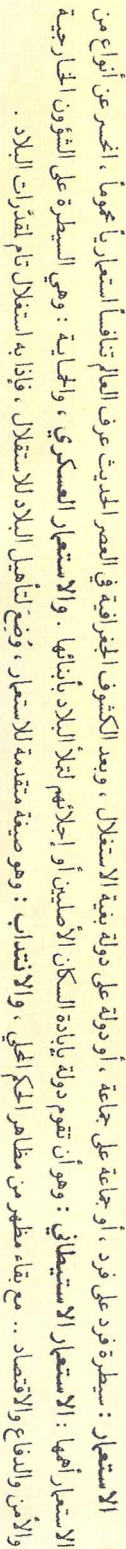 الاستعمار : سيطرة فرد على فرد ، أو جماعة على جماعة ، أو دولة على دولة بغية الاستغلال ، وبعد الكشوف الجغرافية في العصر الحديث عرف العالم تنافساً استعمارياً محموماً ، انحسر عن أنواع من
الاستعمار أهمها : الاستعمار الاستيطاني : وهو أن تقوم دولة بإبادة السكان الأصليين أو إجلائهم لتملأ البلاد بأبنائها . والاستعمار العسكري ، والحماية : وهي السيطرة على الشؤون الخارجية
والأمن والدفاع والاقتصاد .. مع بقاء مظهر من مظاهر الحكم المحلي ، والانتداب : وهو صيغة متقدمة للاستعمار ، وُضِعَ لتأهيل البلاد للاستقلال ، فإذا به استغلال تام لمقدَّرات البلاد .